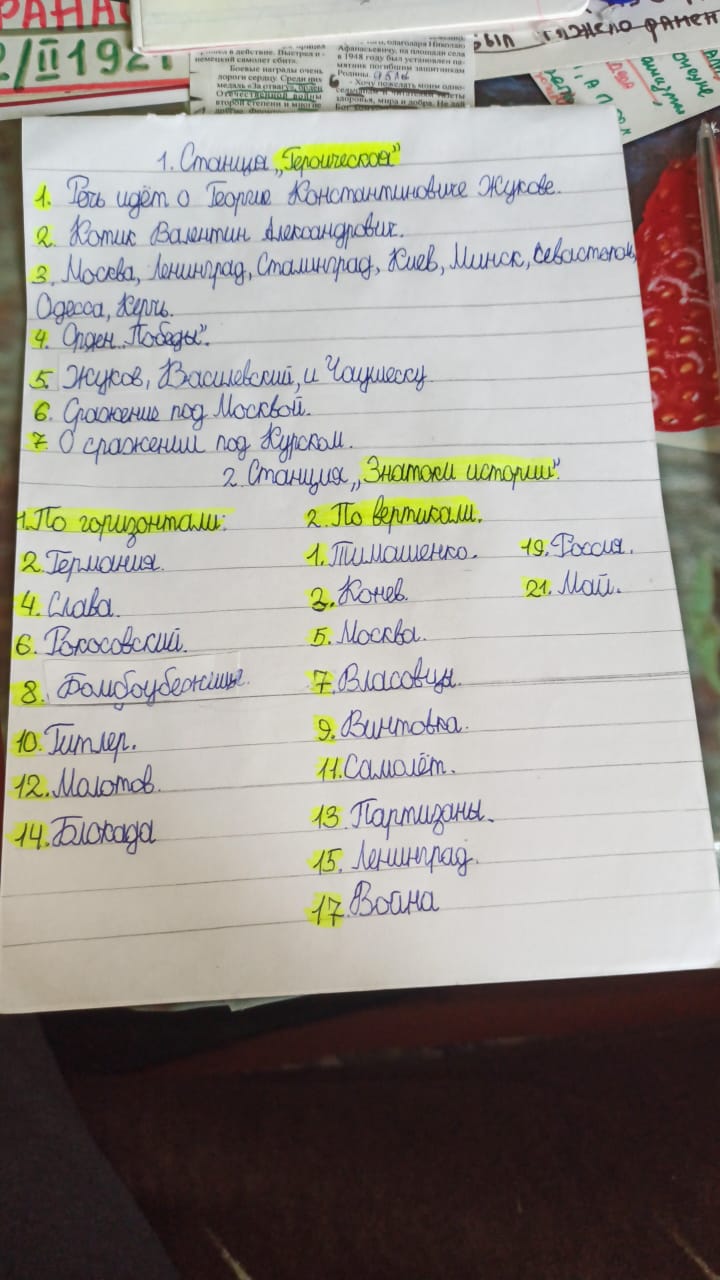 РАНА
2/II 1921
в действие. Выстрел и -
немецкий самолет сбит».
Боевые награды очень
дороги сердцу. Среди них
медаль «За отвагу», орден
Отечественной войны
второй степени и многие
благодаря Николаю
Афанасьевичу, на площади села
в 1948 году был установлен па-
мятник погибшим защитникам
Родины.
- Хочу пожелать моим одно-
здоровья, мира и добра. Не дай
был тяжело ранен
1. Станция „Героическая"
1. Речь идёт о Георгие Константиновиче Жукове.
2. Котик Валентин Александрович.
3. Москва, Ленинград, Сталинград, Киев, Минск, Севастополь,
Одесса, Керчь.
4. Орден „Победы".
5. Жуков, Василевский, и Чаушеску
6. Сражение под Москвой.
7. О сражении под Курском.
2. Станция „Знатоки истории".
1. По горизонтали: 2. По вертикали.
2. Германия. 1. Тимошенко. 19. Россия.
4. Слава. 3. Конев. 21. Май.
6. Рокосовский. 5. Москва.
8. Бомбоубежище. 7. Власовцы.
10. Гитлер. 9. Винтовка.
12. Молотов. 11. Самолёт.
14. Блокада 13. Партизаны.
15. Ленинград.
17. Война